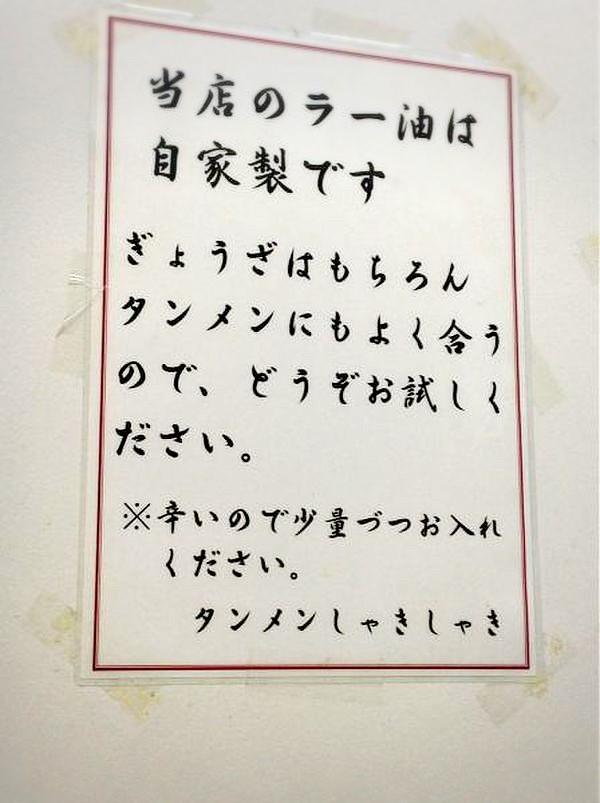 当店のラー油は
自家製です
ぎょうざはもちろん
タンメンにもよく合う
ので、どうぞお試しく
ださい。
※辛いので少量づつお入れ
ください。
タンメンしゃきしゃき